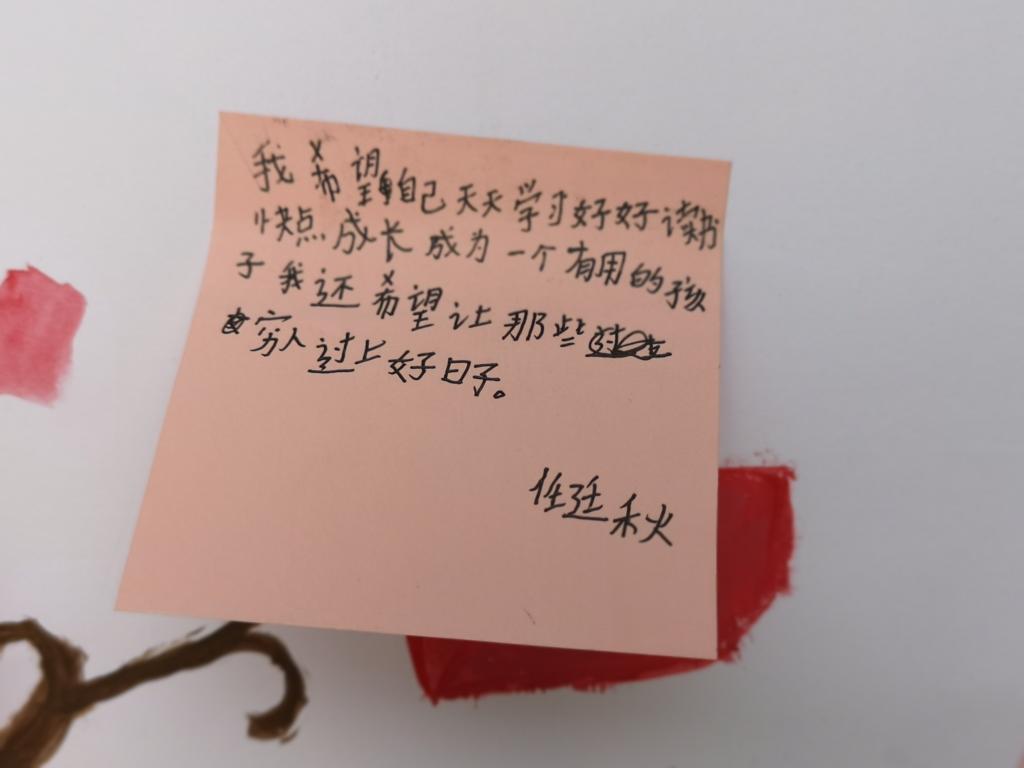 我希望自己天天学习好好读书
快点成长成为一个有用的孩
子我还希望让那些
穷人过上好日子。
任廷秋